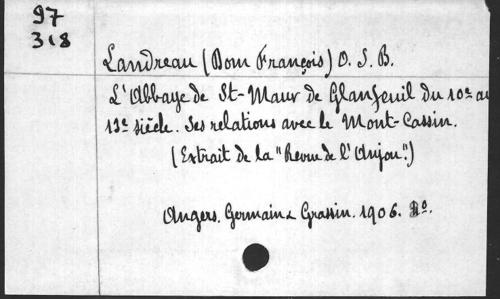 97
318
Landreau (Dom François) O. S. B.
L'Abbaye de St-Maur de Glanfeuil du 10e au
13e siècle. Ses relations avec le Mont-Cassin.
(Extrait de la "Revue de l'Anjou".)
Angers. Germain & Grassin. 1906. 8o.